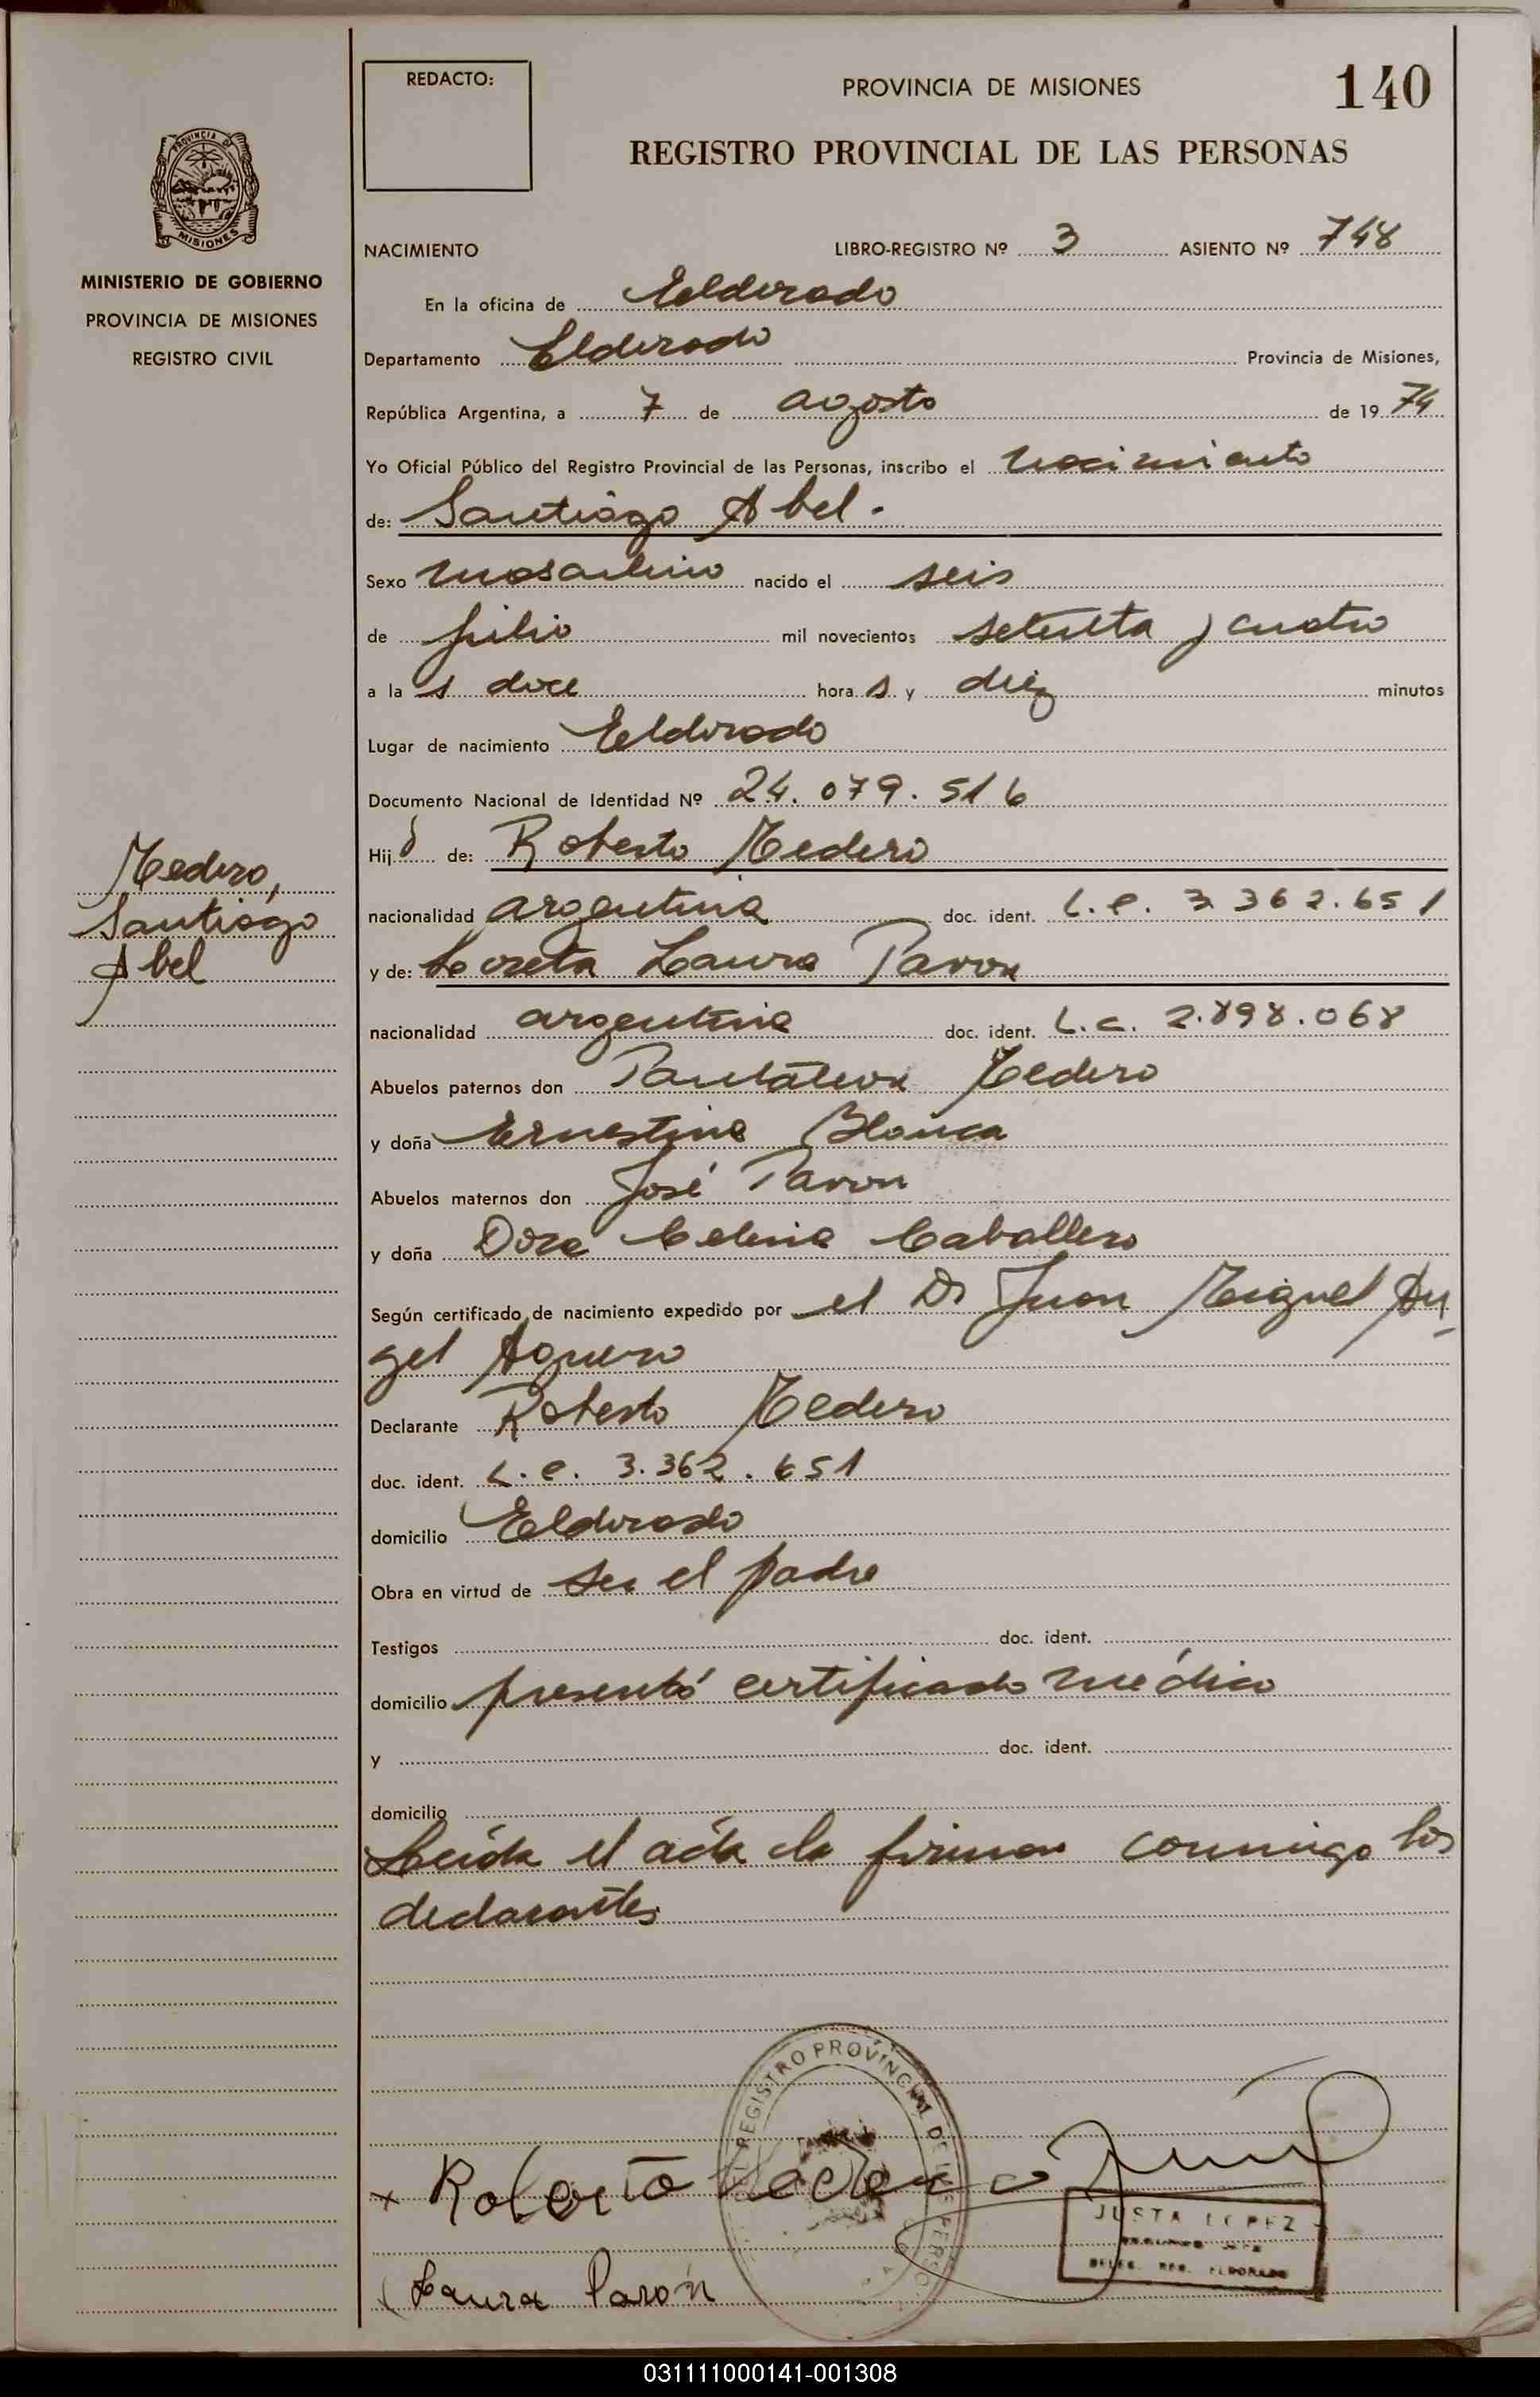 REDACTO:
PROVINCIA DE MISIONES
140
REGISTRO PROVINCIAL DE LAS PERSONAS
PROVINCIA DE
MISIONES
MINISTERIO DE GOBIERNO
PROVINCIA DE MISIONES
REGISTRO CIVIL
NACIMIENTO LIBRO-REGISTRO Nº 3 ASIENTO Nº 748
En la oficina de Eldorado
Departamento Eldorado Provincia de Misiones,
República Argentina, a 7 de agosto de 1974
Yo Oficial Público del Registro Provincial de las Personas, inscribo el nacimiento
de: Santiago Abel.
Sexo masculino nacido el seis
de julio mil novecientos setenta y cuatro
a la s doce hora s y diez minutos
Lugar de nacimiento Eldorado
Documento Nacional de Identidad Nº 24.079.516
Hijo de: Roberto Medero
Medero,
Santiago
Abel
nacionalidad argentina doc. ident. L.e. 3.362.651
y de: Loreta Laura Pavon
nacionalidad argentina doc. ident. L.c. 2.898.068
Abuelos paternos don Pantaleon Medero
y doña Ernestina Blanca
Abuelos maternos don José Pavon
y doña Dora Celeria Caballero
Según certificado de nacimiento expedido por el Dr Juan Miguel An-
gel Aguero
Declarante Roberto Medero
doc. ident. L.e. 3.362.651
domicilio Eldorado
Obra en virtud de ser el padre
Testigos doc. ident.
domicilio presentó certificado médico
y doc. ident.
domicilio
Leída el acta la firman conmigo los
declarantes
REGISTRO PROVINCIAL DE LAS PERSO
x Roberto Medero
JUSTA LOPEZ
DELEG. REG. ELDORADO
Laura Parón
031111000141-001308